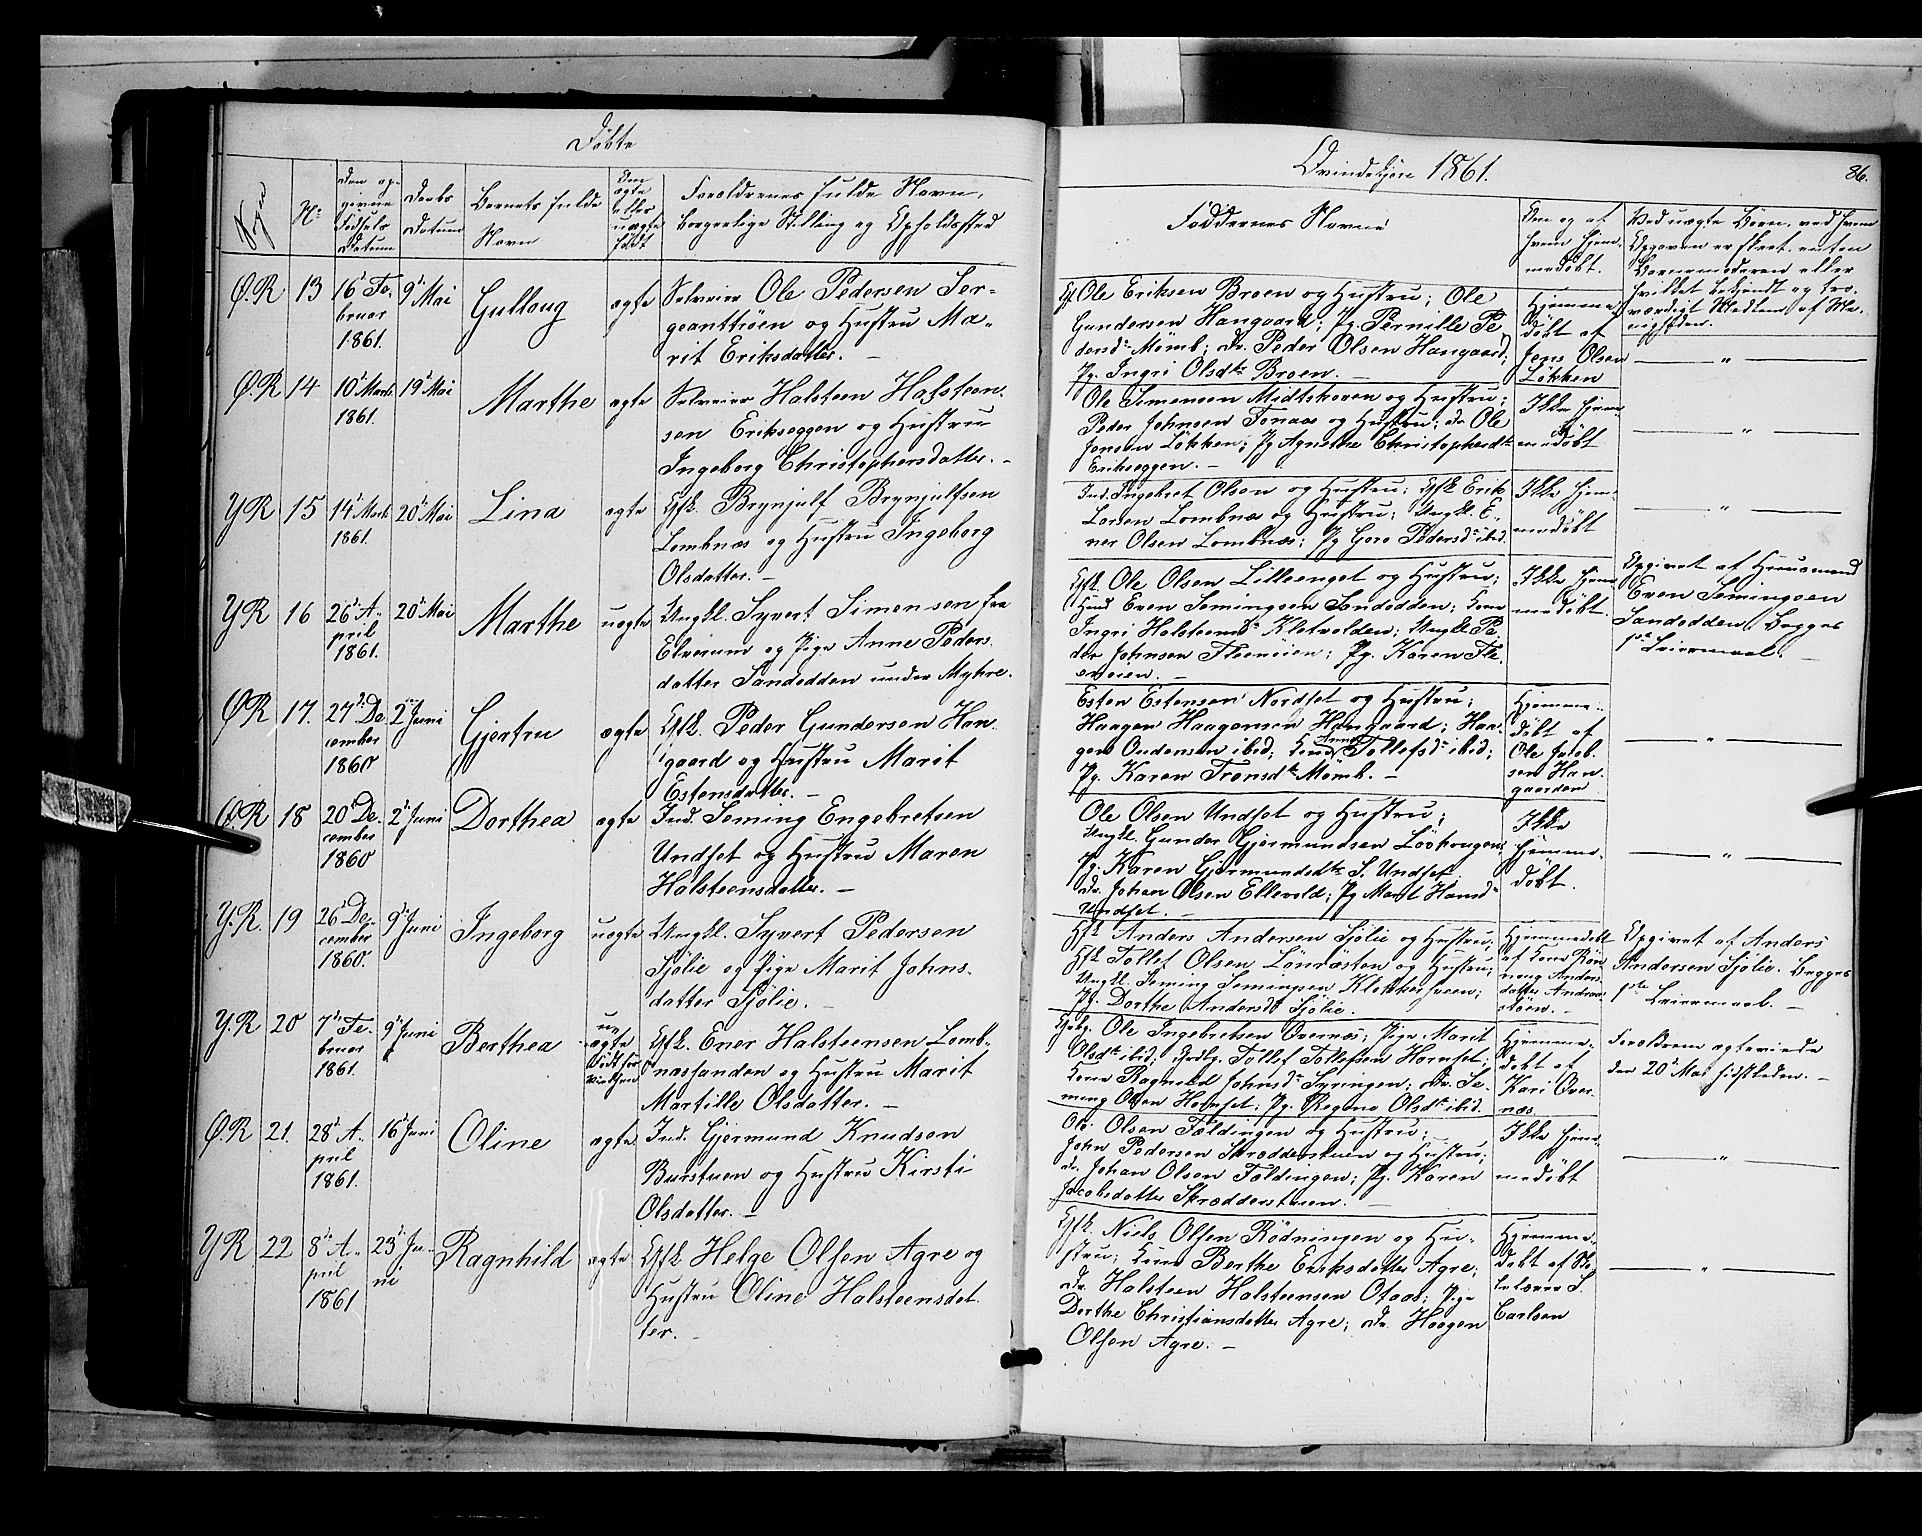 Døbte
Qvindekjön 1861.
86.
Sogn
No
Den op-
givne
Födsels
Datum
Daabs
Datum
Barnets fulde
Navn
Om
ægte
eller
uægte
født
Forældrenes fulde Navn,
borgerlige Stilling og Opholdssted
Faddernes Navne
Om og af
hvem hjem-
medøbt.
Ved uægte Börn, ved hvem
Opgaven er skeet, enten
Barnemoderen eller
hvilket bekjendt og tro-
værdigt Medlem af Me-
nigheden.
Ø.R 13 16de Fe-
bruar
1861.
9de Mai
Gulloug
ægte
Selveier Ole Pedersen Ser-
geanttröen og Hustru Ma-
rit Eriksdatter. —
Gf. Ole Eriksen Broen og Hustru; Ole
Gundersen Haugaard; Pg. Pernille Pe-
dersdtr Momb; Dr. Peder Olsen Haugaard;
Pg. Ingri Olsdtr Broen. —
Hjemme-
döbt af
Jens Olsen
Løkken
— " —
Ø.R 14 10de Marts
1861.
19de Mai
Marthe
ægte
Selveier Halsteen Halsteen-
sen Erikseggen og Hustru
Ingeborg Christophersdatter. —
Ole Simensen Midtskoven og Hustru;
Peder Johnsen Fonaas og Hustru; Dr Ole
Jensen Løkken; Pg Agnethe Christophersdtr
Erikseggen. —
Ikke hjem-
medøbt
— " —
YR 15 14de Marts
1861.
20de Mai
Lina
ægte
Gfk. Brynjulf Brynjulfsen
Lombnæs og Hustru Ingeborg
Olsdatter. —
Ind. Ingebret Olsen og Hustru; Gfk Erik
Larsen Lombnæs og Hustru; Ungk. E-
ner Olsen Lombnæs; Pg Goro Pedersdr ibid.
Ikke hjem-
medöbt
— " —
YR 16 26de A-
pril
1861.
20de Mai
Marthe
uægte
Ungkl. Syvert Simensen fra
Elverum og Pige Anne Peders-
datter Sandodden under Myhre.
Gfk. Ole Olsen Lilleenget og Hustru;
Husd Even Semingsen Sandodden; Kone
Ingri Halsteensdr Kletvolden; Ungk. Pe-
der Johnsen ; Pg. Karen
. —
Ikke hjem-
medöbt.
Opgivet af Huusmand
Even Semingsen
Sandodden. Begges
1ste Leiermaal. —
ØR 17. 27de De-
cember
1860
2den Juni
Gjertru
ægte
Gfk. Peder Gundersen Han-
gaard og Hustru Marit
Estensdatter. —
Esten Estensen Nordset og Hustru;
Haagen Haagensen Hangaard; Han-
gen Oudensen ibid; Kone Anne Tollefsdr ibid;
Pg. Karen Tronsdtr Momb. —
Hjemme-
döbt af
Ole Jacob-
sen Han-
gaarden
— " —
Ø.R 18 20de De-
cember
1860
2den Juni
Dorthea
ægte
Ind. Seming Engebretsen
Undset og Hustru Maren
Halsteensdatter. —
Ole Olsen Undset og Hustru;
Ungkl. Gunder Gjermundsen Lövhaugen;
Pg. Karen Gjermundsdtr S. Undset;
Dr. Johan Olsen Ellevold; Pg Marit Hansdr
Undset. —
Ikke
hjemme-
döbt.
— " —
Y.R. 19 26de De-
cember
1860.
9de Juni
Ingeborg
uægte
Ungkl. Syvert Pedersen
Sjölie og Pige Marit Johns-
datter Sjölie. —
Gfk Anders Andersen Sjölie og Hustru;
Gfk Tollef Olsen Lönæsten og Hustru;
Ungkl. Seming Semingsen Klokkerhveen;
Pg. Dorthe Andersdtr Sjölie. —
Hjemmedöbt
af Kone Rön-
noug Anders-
datter Andraa-
stöen. —
Opgivet af Anders
Andersen Sjölie. Begges
1ste Leiermaal. —
Y.R 20 7de Fe-
bruar
1861.
9de Juni
Berthea
uægte
født for
Vielsen
Gfk. Ener Halsteensen Lomb-
næssanden og Hustru Marit
Martille Olsdatter. —
Gbg. Ole Ingebretsen Övernæs; Pige Marit
Olsdtr ibid; Gdbg. Tollef Tollefsen Hornset;
Kone Ragnild Johnsdr Syringen; Dr. Se-
ming Olsen Hornset; Pg. Regine Olsdtr ibid.
Hjemme-
döbt af
Kari Över-
næs.
Forældrene ægteviede
den 20de Mai sidstleden. —
Ø.R 21. 28de A-
pril
1861.
16de Juni
Oline
ægte
Ind. Gjermund Knudsen
Burstuen og Hustru Kirsti
Olsdatter. —
Ole Olsen Foldingen og Hustru;
John Pedersen Skrædderstuen og Hustru;
Dr. Johan Olsen Foldingen; Pg. Karen
Jacobsdatter Skrædderstuen. —
Ikke hjem-
medöbt
— " —
YR 22 8de A-
pril
1861
23de Ju-
ni
Ragnhild
ægte
Gfk Helge Olsen Agre og
Hustru Oline Halsteensdat-
ter. —
Gfk. Niels Olsen Rödningen og Hu-
stru; Kone Berthe Eriksdatter Agre;
Dr. Halsteen Halsteensen Otaas; Pige
Dorthe Christiansdatter Agre; Dr. Haagen
Olsen Agre. —
Hjemme-
döbt af Sko-
lelærer S.
Carlsen
— " —